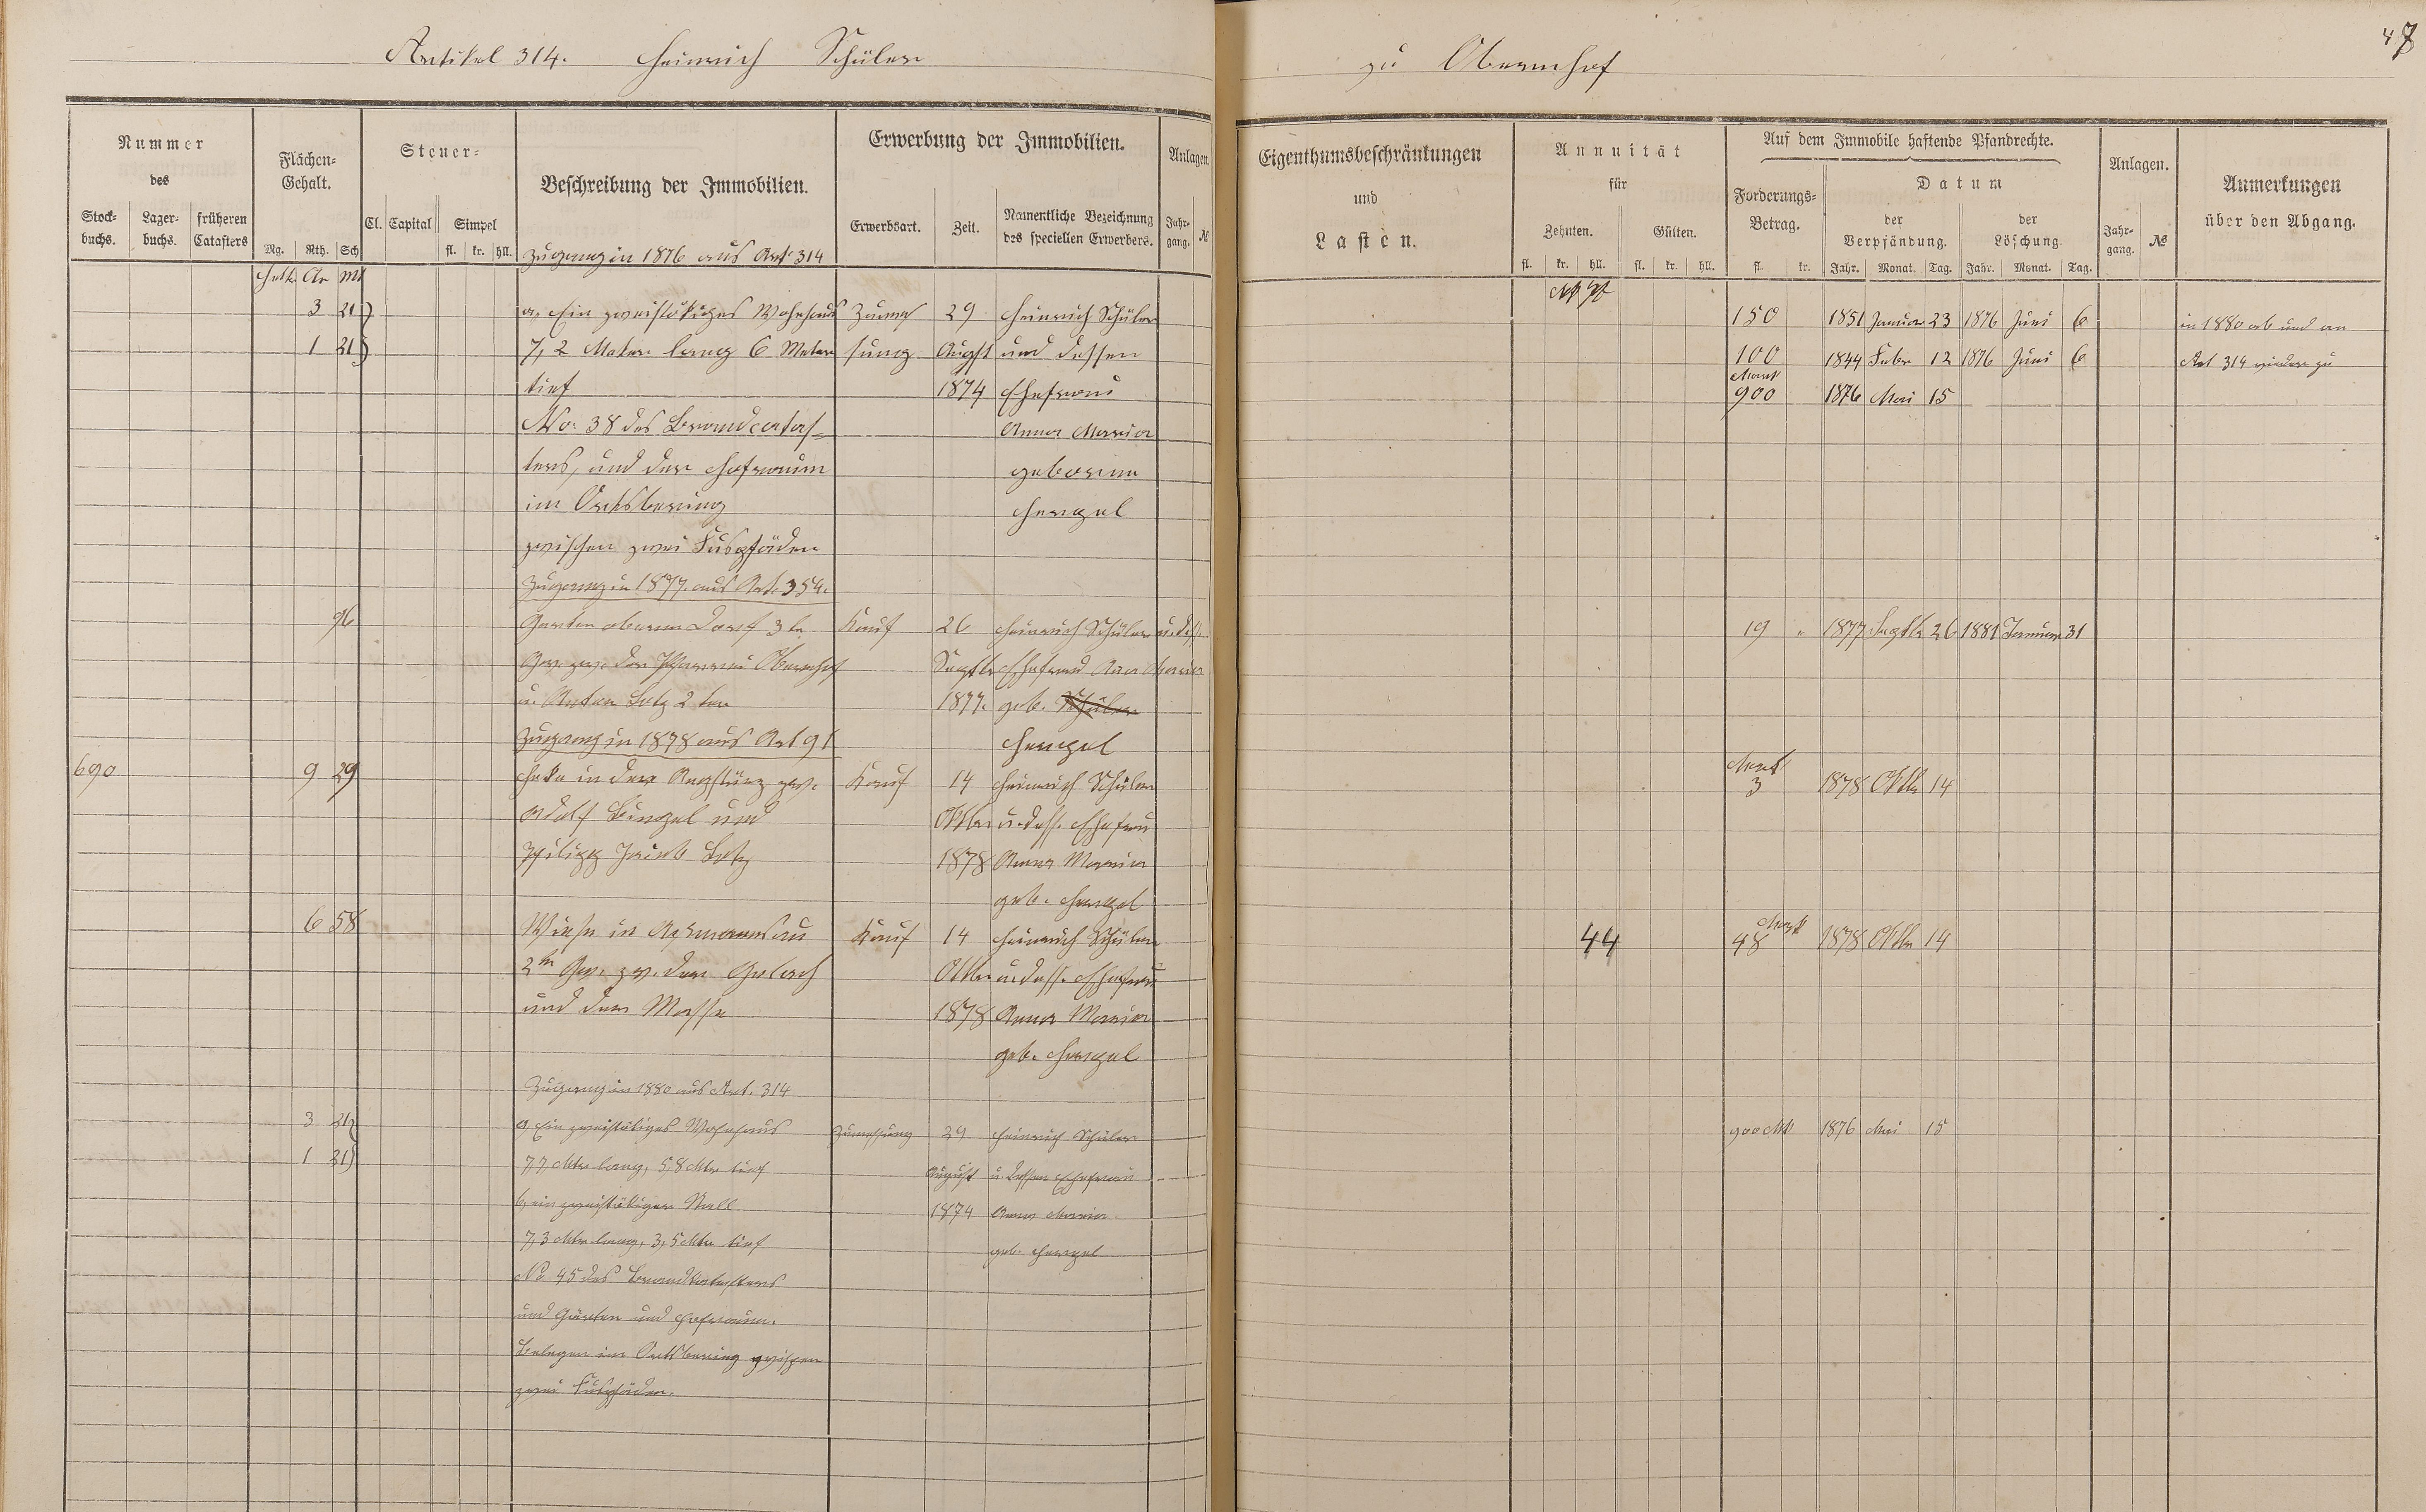 Artikel 314. Heinrich Schüler
zu Obernhof
47
Nummer des
Stockbuchs. Lagerbuchs. früheren Catasters
Flächen-Gehalt.
Mg. Rth. Sch
Steuer-
Cl. Capital Simpel
fl. kr. hll.
Beschreibung der Immobilien.
Erwerbung der Immobilien.
Erwerbsart. Zeit. Namentliche Bezeichnung des speciellen Erwerbers.
Anlagen.
Jahrgang. №
Eigenthumsbeschränkungen
und
Lasten.
Annuität
für
Zehnten. Gülten.
fl. kr. hll. fl. kr. hll.
Auf dem Immobile haftende Pfandrechte.
Forderungs-Betrag.
fl. kr.
Datum
der Verpfändung. der Löschung
Jahr. Monat. Tag. Jahr. Monat. Tag.
Anlagen.
Jahrgang. №
Anmerkungen
über den Abgang.
Zugang in 1876 aus Art 314
Hekt. Ar Mt
3 21 a, Ein zweistökiges Wohnhaus Zumes 29 Heinrich Schüler 150 1851 Januar 23 1876 Juni 6 in 1880 ab und an
1 21 7,2 Meter lang 6 Meter sung Augst und dessen 100 1844 Febr 12 1876 Juni 6 Art 314 wieder zu
tief 1874 Ehefrau Mark 900 1876 Mai 15
No. 38 des Brandcatas- Anna Maria
ters, und der Hofraum geborene
im Ortsbering Hengel
zwischen zwei Fuspfäden
Zugang in 1877 aus Art. 354.
96 Garten oberm Dorf 3 te Kauf 26 Heinrich Schüler u. dess. 19 " 1877 Septbr 26 1881 Januar 31
Gew. zw. der Pfarrei Obernhof Septbr Ehefrau Anna Maria
u. Anton Lotz 2 ter 1877. geb. Schüler
Zugang in 1878 aus Art 91 Hengel
690 9 29 Heke in der zw. Kauf 14 Heinrich Schüler Mark 3 1878 Oktbr 14
Adolf Bingel und Oktbr u. dess. Ehefrau
Philipp Jacob Lotz 1878 Anna Maria
geb. Hengel
6 58 Wiese in Kauf 14 Heinrich Schüler 44 Mark 48 1878 Oktbr 14
2te Gew. zw. der Gelbach Oktbr u. dess. Ehefrau
und dem 1878 Anna Maria
geb. Hengel
Zugang in 1880 aus Art. 314
3 21 a, Ein zweistökiges Wohnhaus Zumessung 29 Heinrich Schüler 900 Mk 1876 Mai 15
1 21 7,7 Mtr lang, 5,8 Mtr tief August u. dessen Ehefrau
b, ein zweistökiger Stall 1874 Anna Maria
7,3 Mtr lang, 3,5 Mtr tief geb. Hengel
No 45 des Brandkatasters
und Garten und Hofraum.
Belegen im Ortsbering zwischen
zwei Fuspfäden.